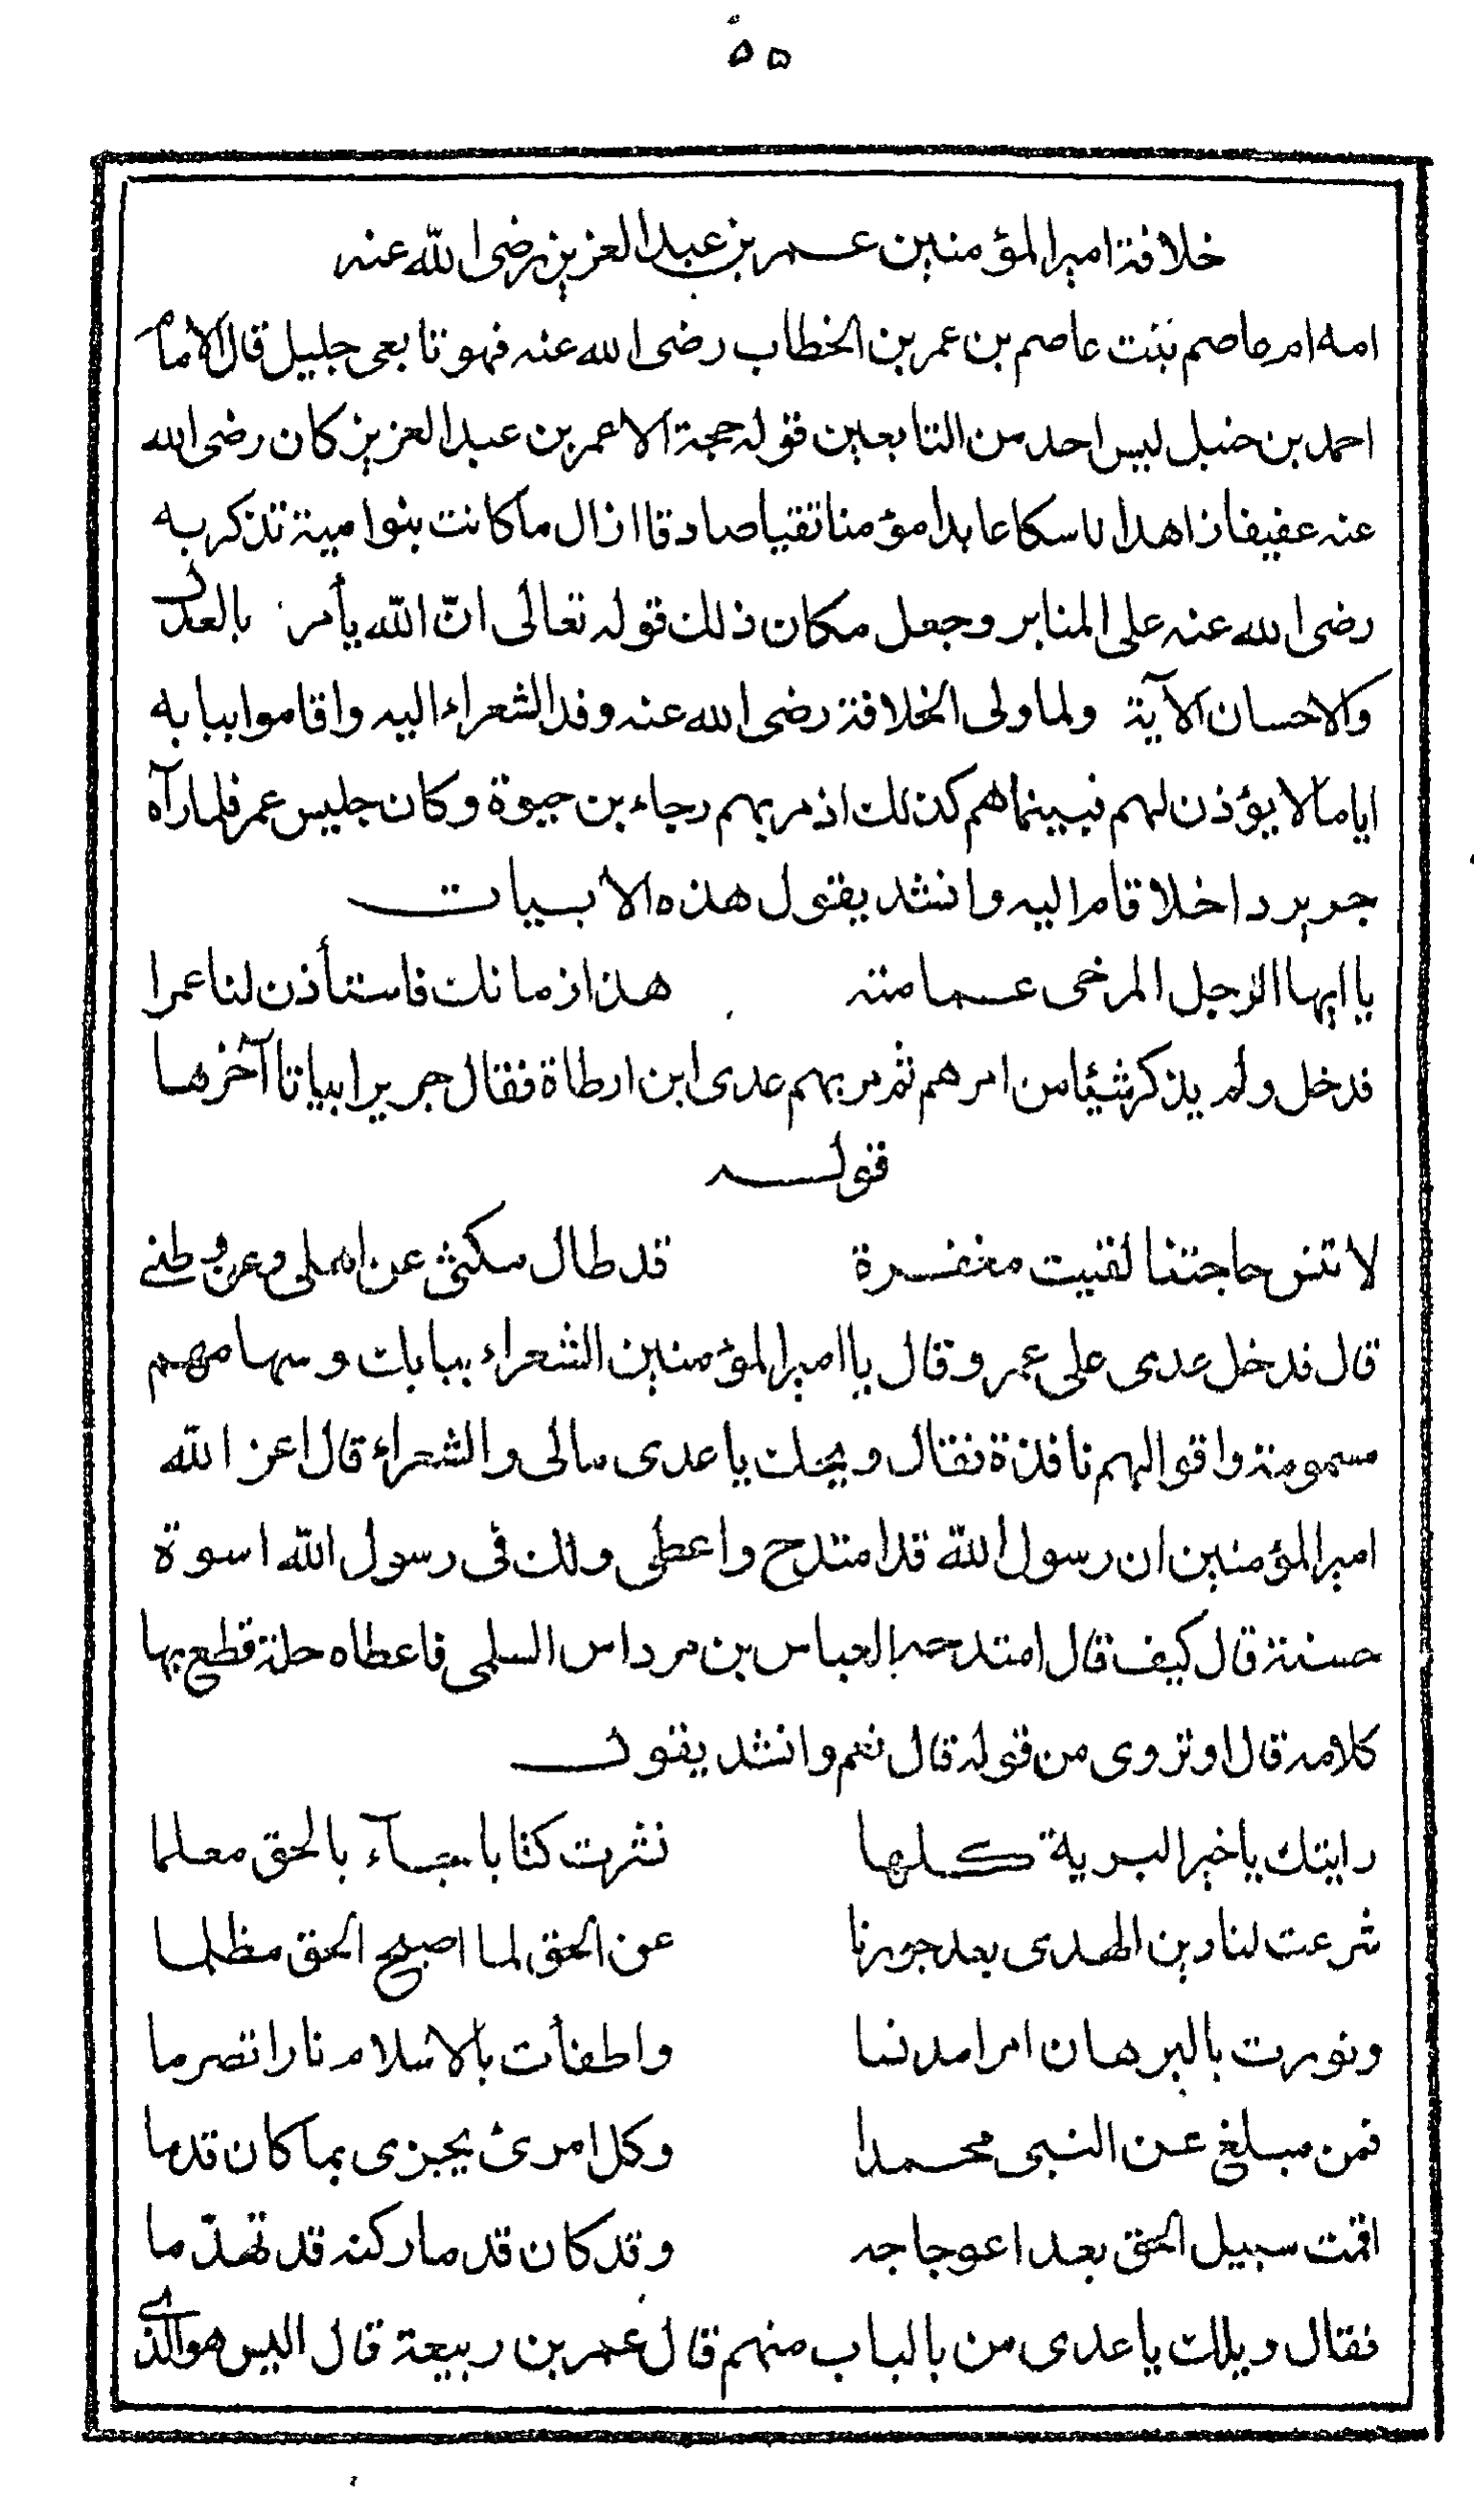 ٥٥
خلافة امير المؤمنين عمر بن عبد العزيز رضى الله عنه
امه ام عاصم بنت عاصم بن عمر بن الخطاب رضى الله عنه فهو تابعى جليل قال الامام
احمد بن حنبل ليس احد من التابعين قوله حجة الا عمر بن عبد العزيز كان رضى الله
عنه عفيفا زاهدا ناسكا عابدا مؤمنا تقيا صادقا ازال ما كانت بنو امية تذكر به
رضى الله عنه على المنابر وجعل مكان ذلك قوله تعالى انّ الله يأمر بالعدل
والاحسان الآية ولما ولى الخلافة رضى الله عنه وفد الشعراء اليه واقاموا ببابه
اياما لا يؤذن لهم فبينما هم كذلك اذ مر بهم رجاء بن حيوة وكان جليس عمر فلما رآه
جرير داخلا قام اليه وانشد يقول هذه الابيات
يا ايها الرجل المرخى عمامته هذا زمانك فاستأذن لنا عمرا
فدخل ولم يذكر شيئا من امرهم ثم مر بهم عدى ابن ارطاة فقال جرير ابياتا آخرها
قوله
لا تنس حاجتنا لقيت مغفرة قد طال مكثى عن اهلى وعن وطنى
قال فدخل عدى على عمر وقال يا امير المؤمنين الشعراء ببابك وسهامهم
مسمومة واقوالهم نافذة فقال ويحك يا عدى مالى والشعراء قال اعز الله
امير المؤمنين ان رسول الله قد امتدح واعطى ولك فى رسول الله اسوة
حسنة قال كيف قال امتدحه العباس بن مرداس السلمى فاعطاه حلة قطع بها
كلامه قال اوتروى من قوله قال نعم وانشد يقول
رايتك يا خير البرية كلها نشرت كتابا جآء بالحق معلما
شرعت لنا دين الهدى بعد جورنا عن الحق لما اصبح الحق مظلما
ونورت بالبرهان امرا مدنسا واطفأت بالاسلام نارا تضرما
فمن مبلغ عن النبى محمدا وكل امرئ يجزى بما كان قدما
اقمت سبيل الحق بعد اعوجاجه وقد كان قدما ركنه قد تهدّما
فقال ويلك يا عدى من بالباب منهم قال عمر بن ربيعة قال اليس هو الذى